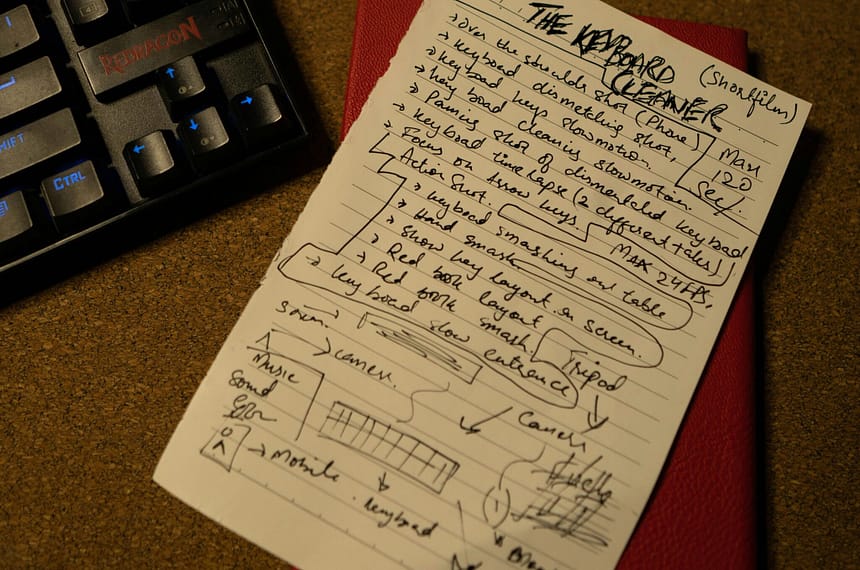 REDRAGON
SHIFT
CTRL
THE KEYBOARD
CLEANER
(Shortfilm)
→ Over the shoulder shot (Phone)
→ keyboard dismetching shot,
→ keyboad keys slowmotion.
→ key board cleaning slowmotion
→ Paning shot of dismentaled keyboad
→ keyboad time lapse (2 different takes)
→ Focus on Arrow keys.
Max
120
Sec/.
MAX 24 FPS,
Action Shot.
→ keyboad smashing on table
→ Hand smash
→ Show key layout on screen.
→ Red book layout
→ Red book smash.
→ keyboad slow entrence
→ camera.
Music
Sound
→ Mobile
keyboad
Tripod
Camera